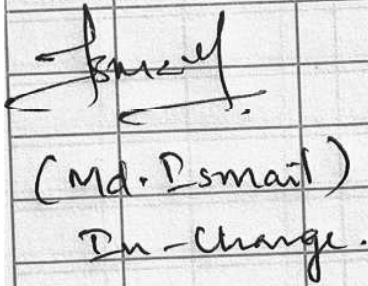 Ismail
(Md. Ismail)
In-Charge.